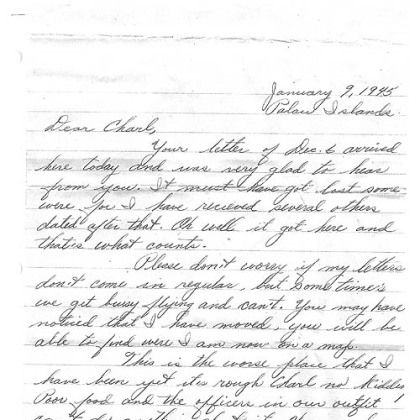 January 9, 1945
Palau Islands.
Dear Charl,
Your letter of Dec. 6 arrived
here today and was very glad to hear
from you. It must have got lost some-
were for I have recieved several others
dated after that. Oh well it got here and
that's what counts.
Please don't worry if my letters
don't come in regular, but sometimes
we get bussy flying and can't. You may have
noticed that I have moved, you will be
able to find were I am now on a map.
This is the worse place that I
have been yet its rough Charl no kidding!
Poor food and the officers in our outfit